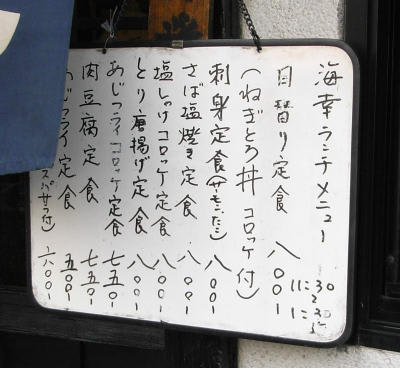 海幸ランチメニュー
日替り定食 八〇〇
(ねぎとろ丼 コロッケ付)
刺身定食(サーモン、たこ) 八〇〇
さば塩焼き定食 八〇〇
塩しゃけコロッケ定食 八〇〇
とり唐揚げ定食 八〇〇
あじフライコロッケ定食 七五〇
肉豆腐定食 七五〇
あじフライ定食 五〇〇
スパサラ付) 六〇〇